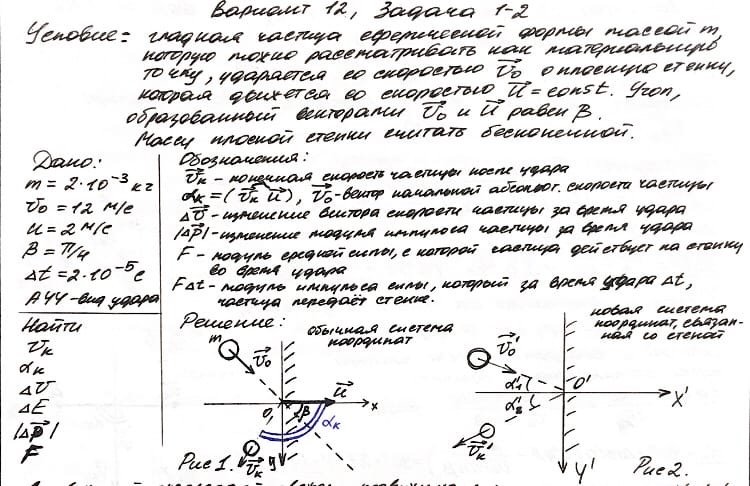 Вариант 12, Задача 1-2
Условие: гладкая частица сферической формы массой m,
которую можно рассматривать как материальную
точку, ударяется со скоростью v₀ о плоскую стенку,
которая движется со скоростью u = const. Угол,
образованный векторами v₀ и u равен β.
Массу плоской стенки считать бесконечной.
Дано:
m = 2·10⁻³ кг
v₀ = 12 м/с
u = 2 м/с
β = π/4
Δt = 2·10⁻⁵ с
АУУ - вид удара
Найти
vк
αк
ΔV
ΔE
|Δp|
F
Обозначения:
vк - конечная скорость частицы после удара
αк = (vк u), v₀ - вектор начальной абсолют. скорости частицы
ΔV - изменение вектора скорости частицы за время удара
|Δp| - изменение модуля импульса частицы за время удара
F - модуль средней силы, с которой частица действует на стенку
во время удара
FΔt - модуль импульса силы, который за время удара Δt,
частица передаёт стенке.
Решение:
обычная система
координат
m
v₀
u
O,
β
x
αк
vк
y
Рис 1.
новая система
координат, связан-
ная со стеной
v₀'
α₁'
O'
α₂'
X'
vк'
Y'
Рис 2.